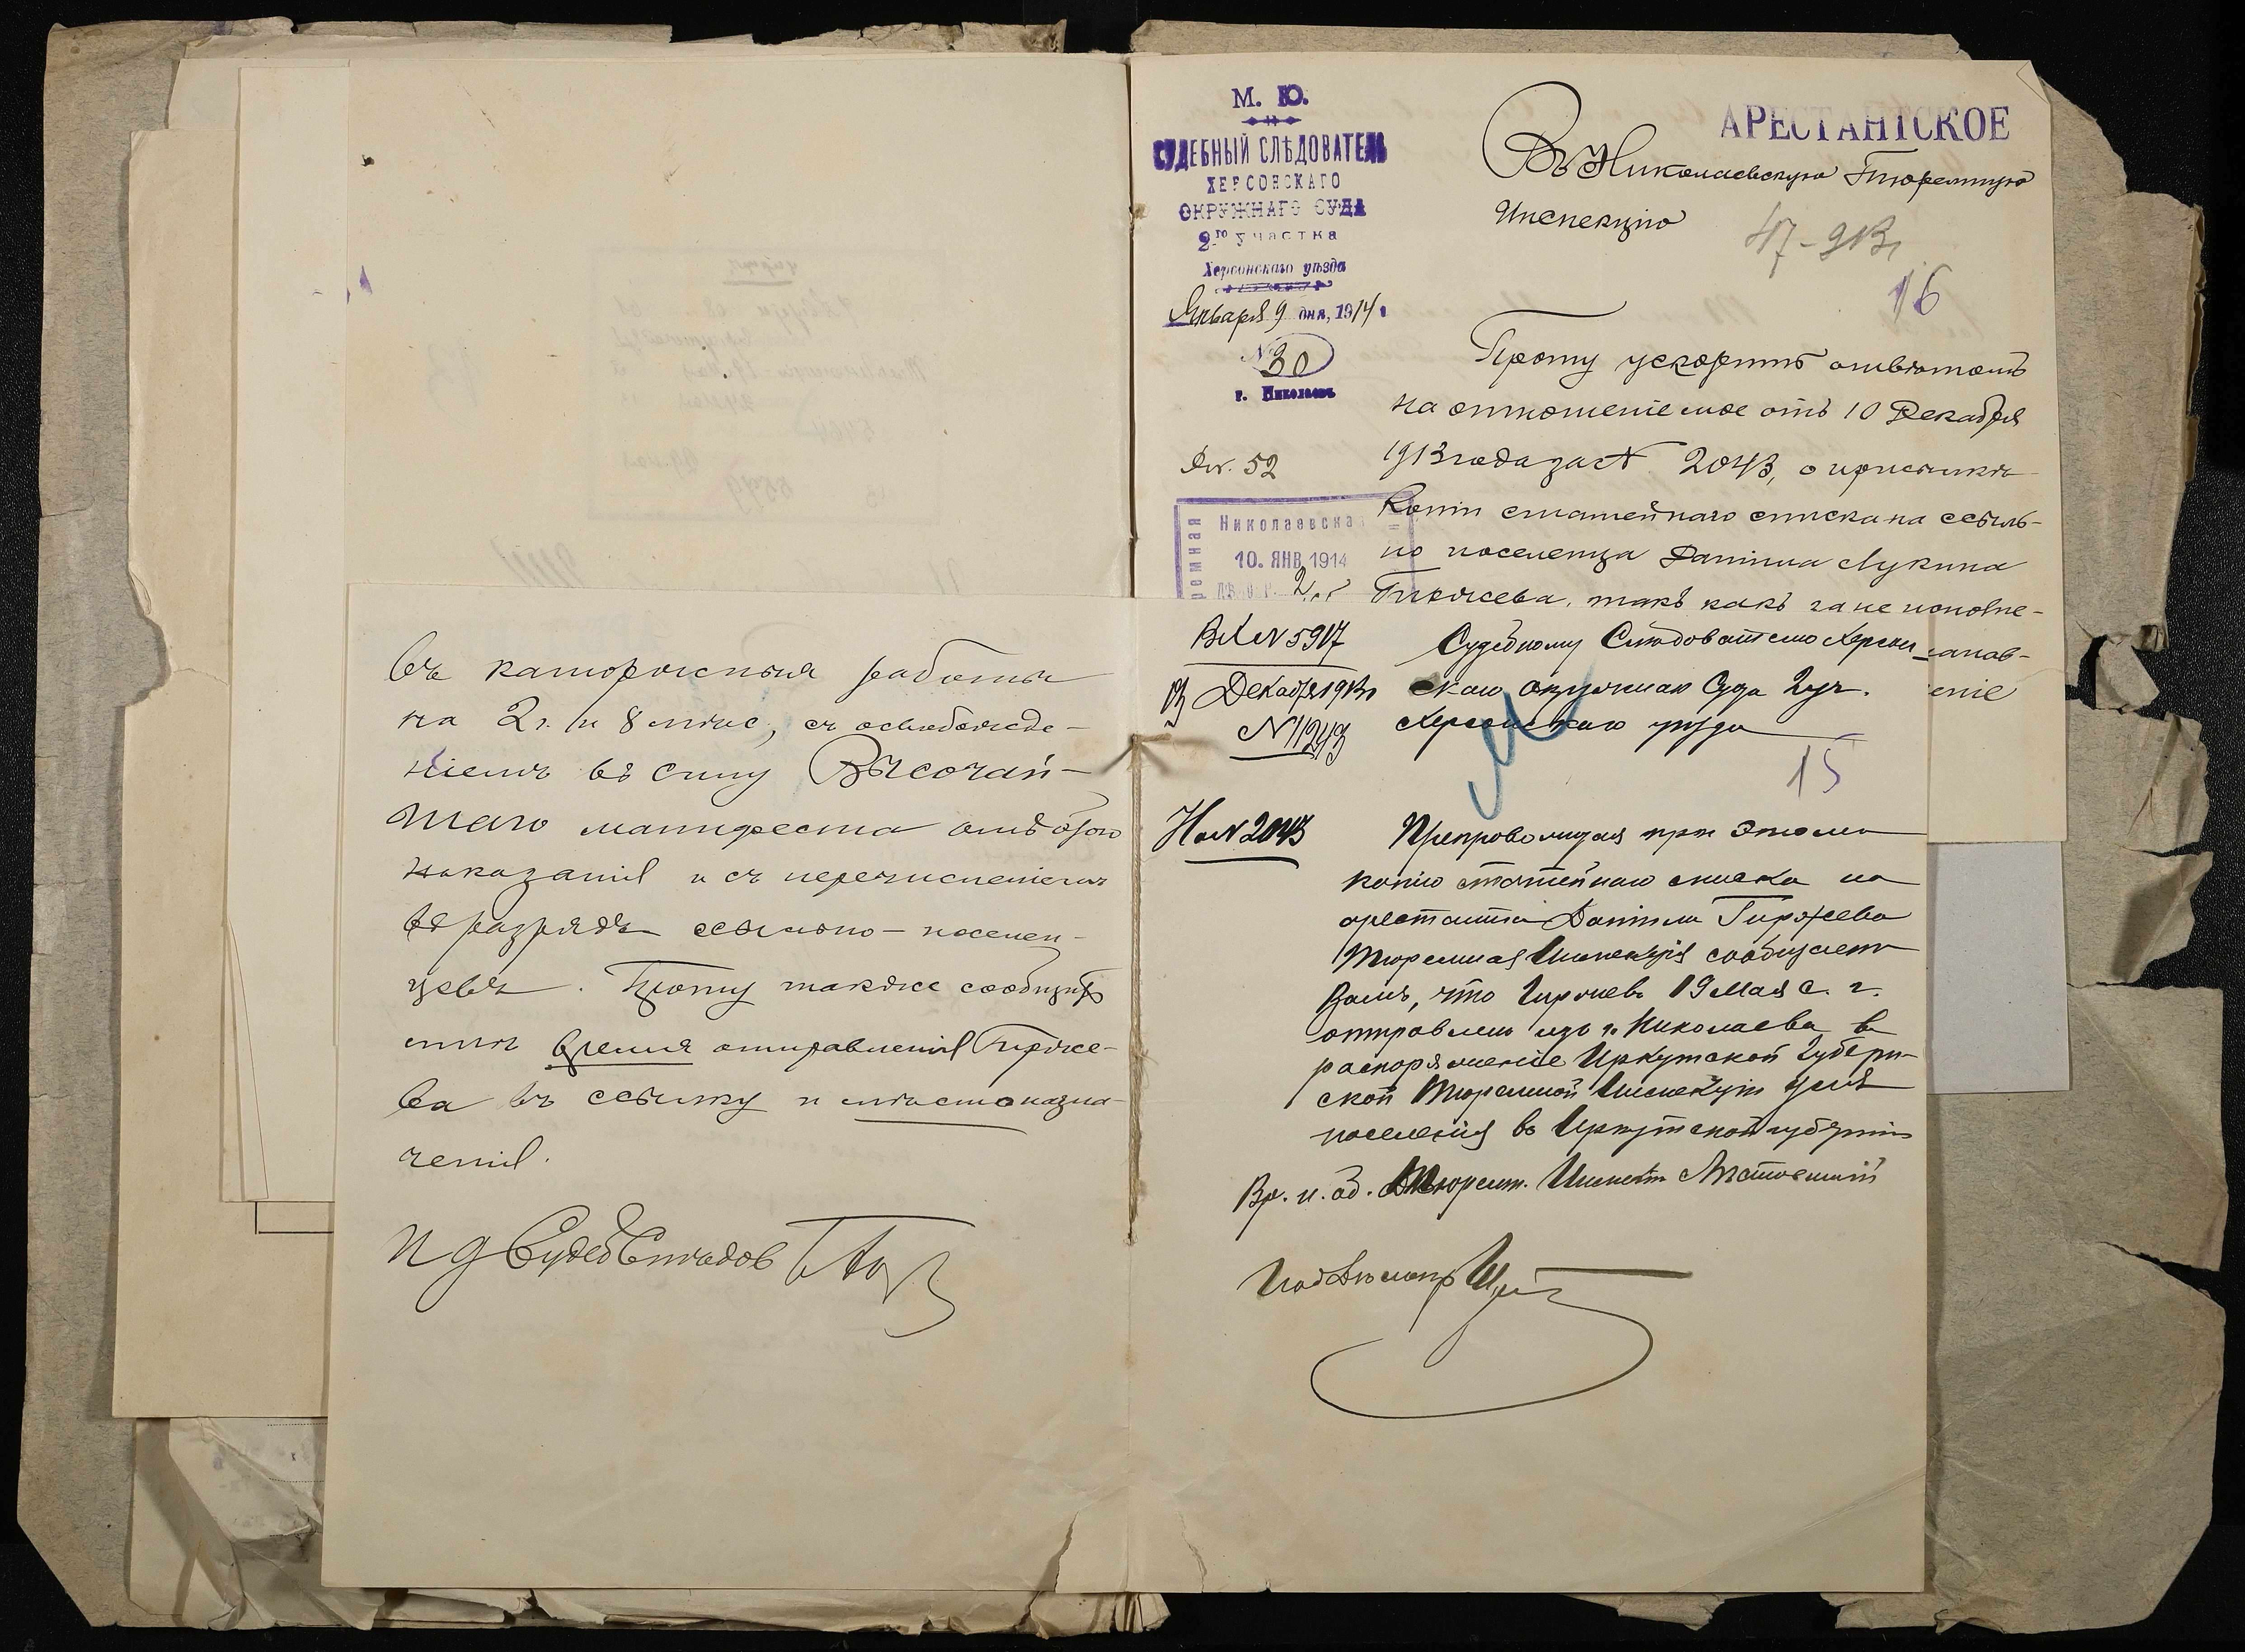 въ каторжныя работы
на 2 г. и 8 мѣс., съ освобожде-
ніемъ въ силу Высочай-
шаго манифеста отъ этого
наказанія и съ перечисленіемъ
въ разрядъ ссыльно-поселен-
цевъ. Прошу также сообщить
мнѣ время отправленія Гирже-
ва въ ссылку и мѣсто назна-
ченія.
И д Судеб Слѣдов
М. Ю.
СУДЕБНЫЙ СЛѢДОВАТЕЛЬ
ХЕРСОНСКАГО
ОКРУЖНАГО СУДА
2го участка
Херсонскаго уѣзда
Января 9 дня, 1914
№ 30
г. Николаевъ
Дѣл. 52
Николаевска
10. ЯНВ. 1914
АРЕСТАНТСКОЕ
Въ Николаевскую Тюремную
Инспекцію
47-913
16
Прошу ускорить отвѣтомъ
на отношеніе мое отъ 10 Декабря
1913 года за № 2043, о присылкѣ
копіи статейнаго списка на ссыль-
но поселенца Даніила Лукина
Гиржева, такъ какъ за не исполне-
Вх № 5917
13 Декабря 1913 г
№ 11243
Судебному Слѣдователю Херсон
скаго окружнаго Суда 2 уч.
Херсонскаго уѣзда
15
На № 2043
Препровождая при этомъ
копію статейнаго списка на
арестанта Даніила Гиржева
Тюремная Инспекція сообщаетъ
Вамъ, что Гиржевъ 19 Мая с. г.
отправленъ изъ г. Николаева въ
распоряженіе Иркутской Губерн-
ской Тюремной Инспекціи для
поселенія въ Иркутской губерніи
Вр. и. об. Тюремн. Инспект.